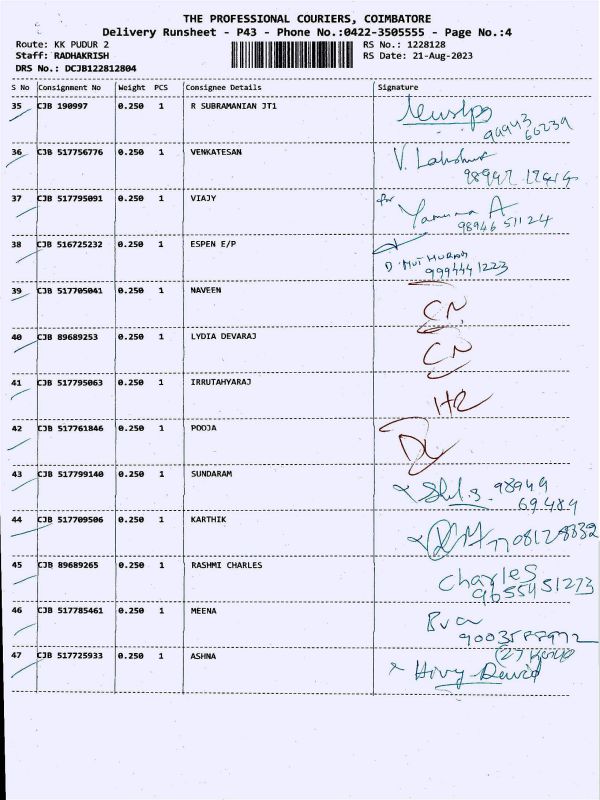 THE PROFESSIONAL COURIERS, COIMBATORE
Delivery Runsheet - P43 - Phone No.:0422-3505555 - Page No.:4
Route: KK PUDUR 2 RS No.: 1228128
Staff: RADHAKRISH RS Date: 21-Aug-2023
DRS No.: DCJB122812804
S No Consignment No Weight PCS Consignee Details Signature
35 CJB 190997 0.250 1 R SUBRAMANIAN JT1
99943
66239
36 CJB 517756776 0.250 1 VENKATESAN V.
37 CJB 517795091 0.250 1 VIAJY for Yamuna A
98946 51124
38 CJB 516725232 0.250 1 ESPEN E/P
9994441223
39 CJB 517705041 0.250 1 NAVEEN CN
40 CJB 89689253 0.250 1 LYDIA DEVARAJ CN
41 CJB 517795063 0.250 1 IRRUTAHYARAJ
42 CJB 517761846 0.250 1 POOJA DL
43 CJB 517799140 0.250 1 SUNDARAM 98949
69489
44 CJB 517709506 0.250 1 KARTHIK
45 CJB 89689265 0.250 1 RASHMI CHARLES Charles
9655451273
46 CJB 517785461 0.250 1 MEENA
47 CJB 517725933 0.250 1 ASHNA